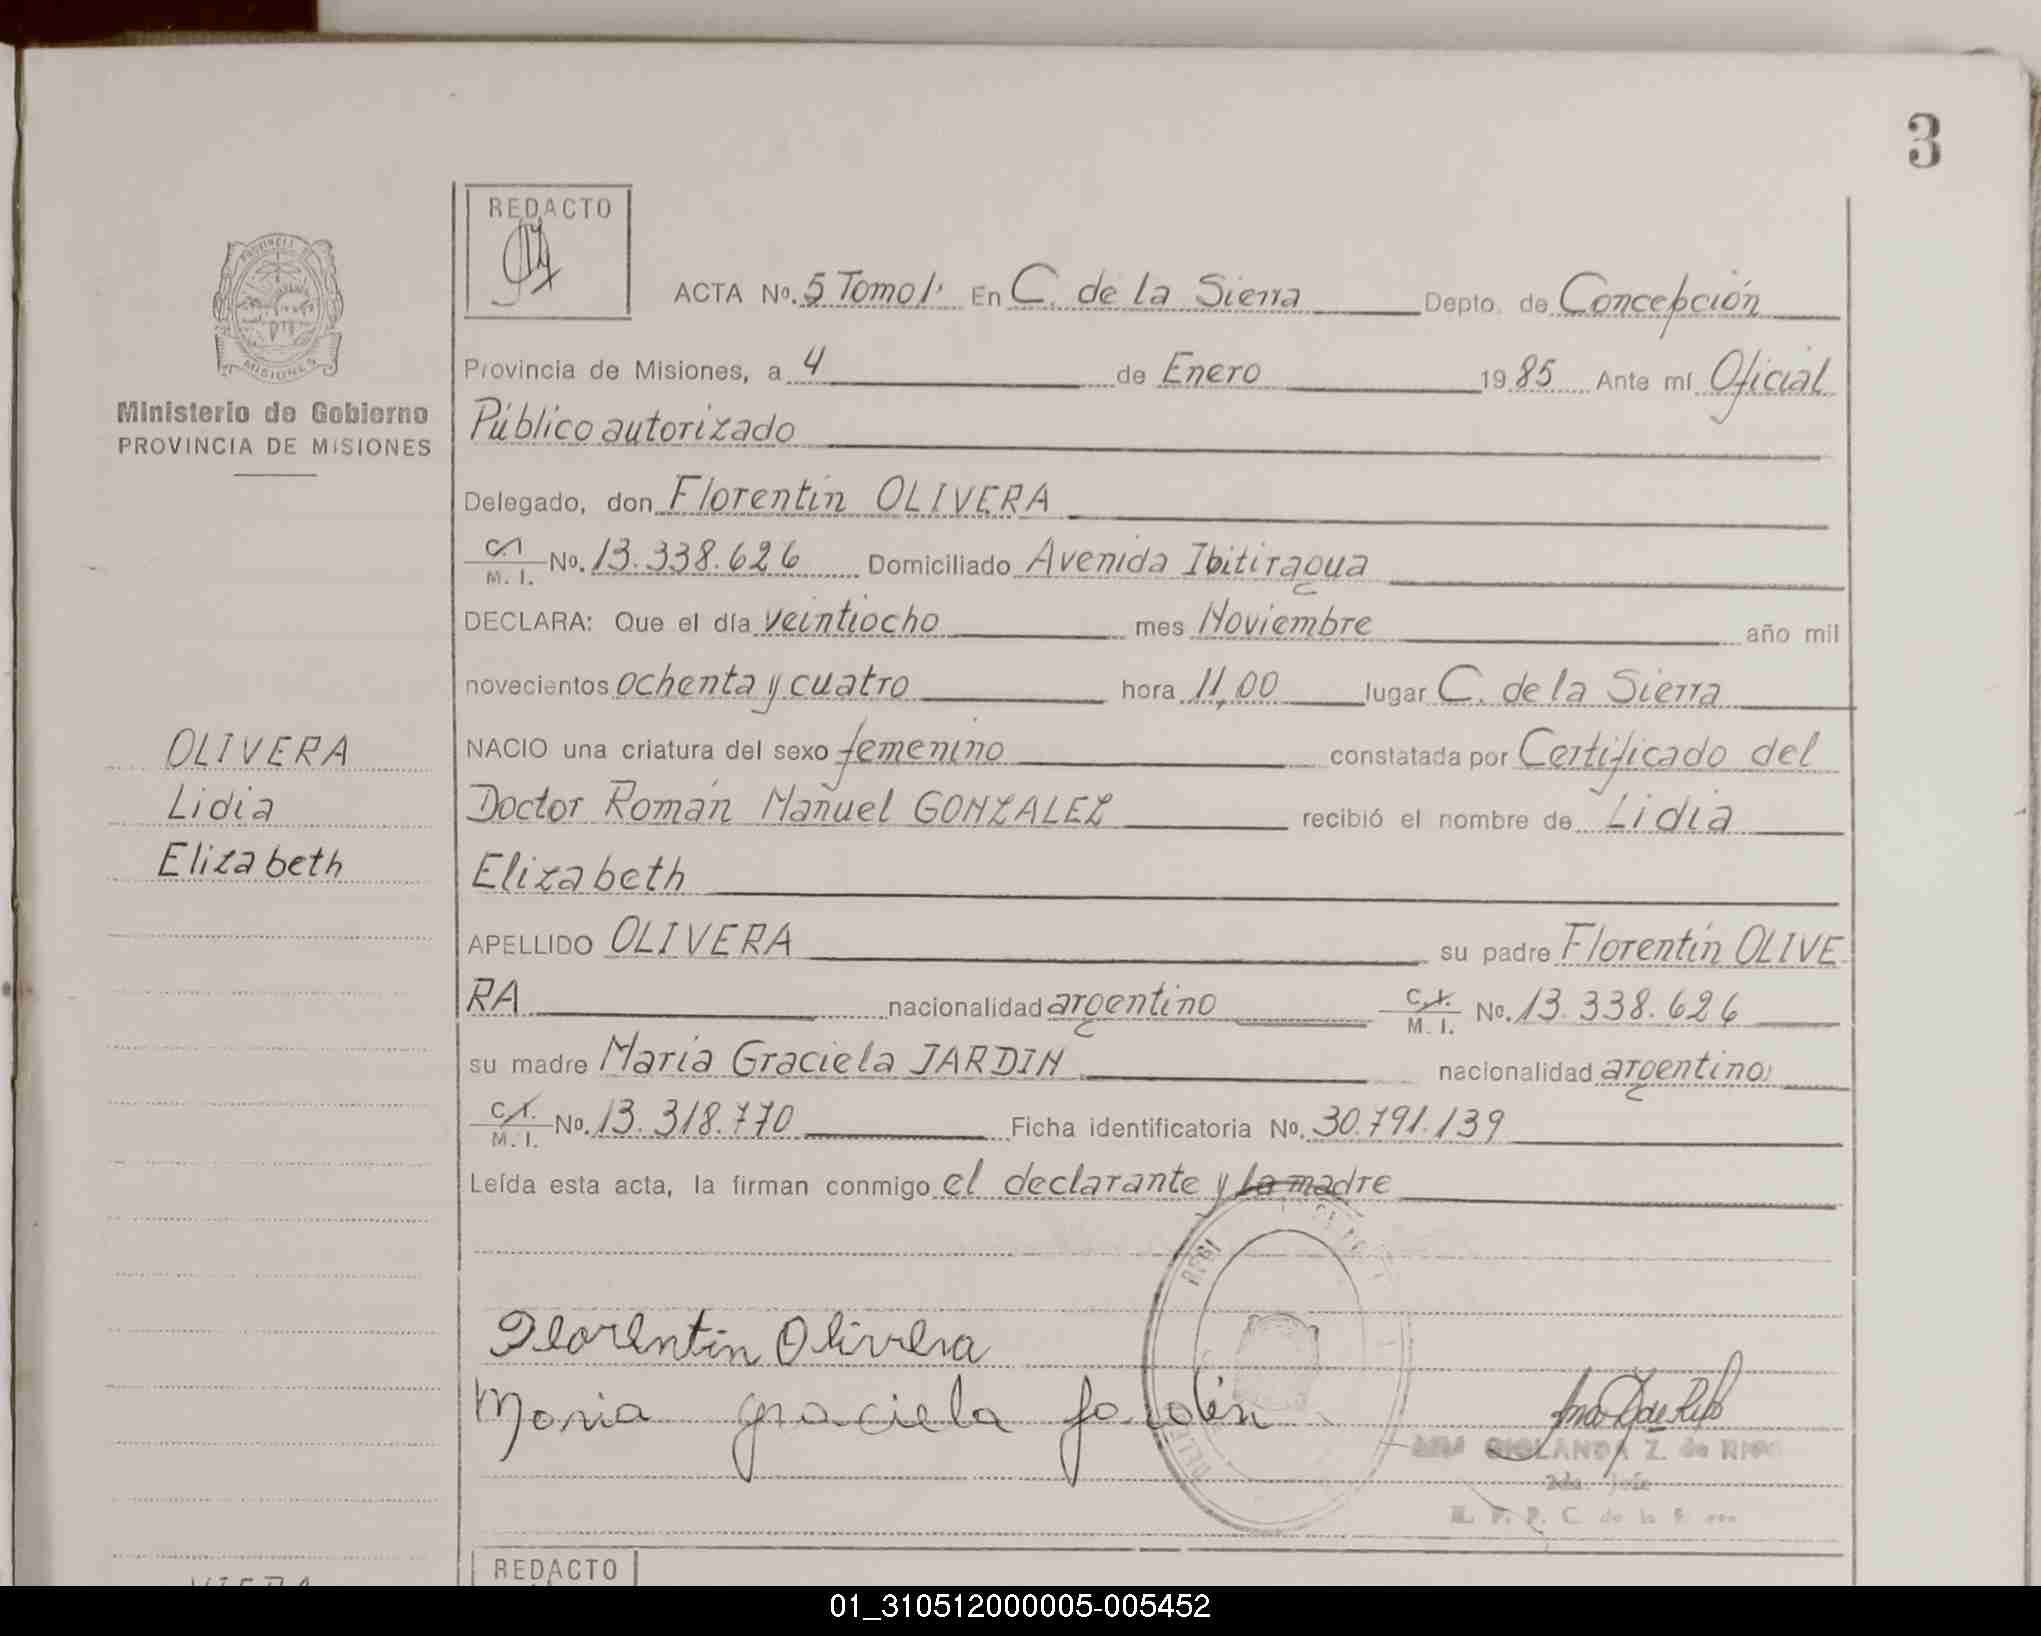 3
REDACTO
PROVINCIA DE
MISIONES
ACTA No. 5 Tomo 1º En C. de la Sierra Depto. de Concepción
Provincia de Misiones, a 4 de Enero 1985 Ante mí Oficial
Ministerio de Gobierno
PROVINCIA DE MISIONES
Público autorizado
Delegado, don Florentín OLIVERA
C.I. M. I. No. 13.338.626 Domiciliado Avenida Ibitiragua
DECLARA: Que el día veintiocho mes Noviembre año mil
novecientos ochenta y cuatro hora 11,00 lugar C. de la Sierra
OLIVERA
Lidia
Elizabeth
NACIO una criatura del sexo femenino constatada por Certificado del
Doctor Román Manuel GONZALEZ recibió el nombre de Lidia
Elizabeth
APELLIDO OLIVERA su padre Florentín OLIVE
RA nacionalidad argentino C.I. M. I. No. 13.338.626
su madre María Graciela JARDIN nacionalidad argentino
C.I. M. I. No. 13.318.770 Ficha identificatoria No. 30.791.139
Leída esta acta, la firman conmigo el declarante y la madre
Florentin Olivera
Maria graciela Jardin
Z. de
2da. Jefe
C. de la
REDACTO
01_310512000005-005452